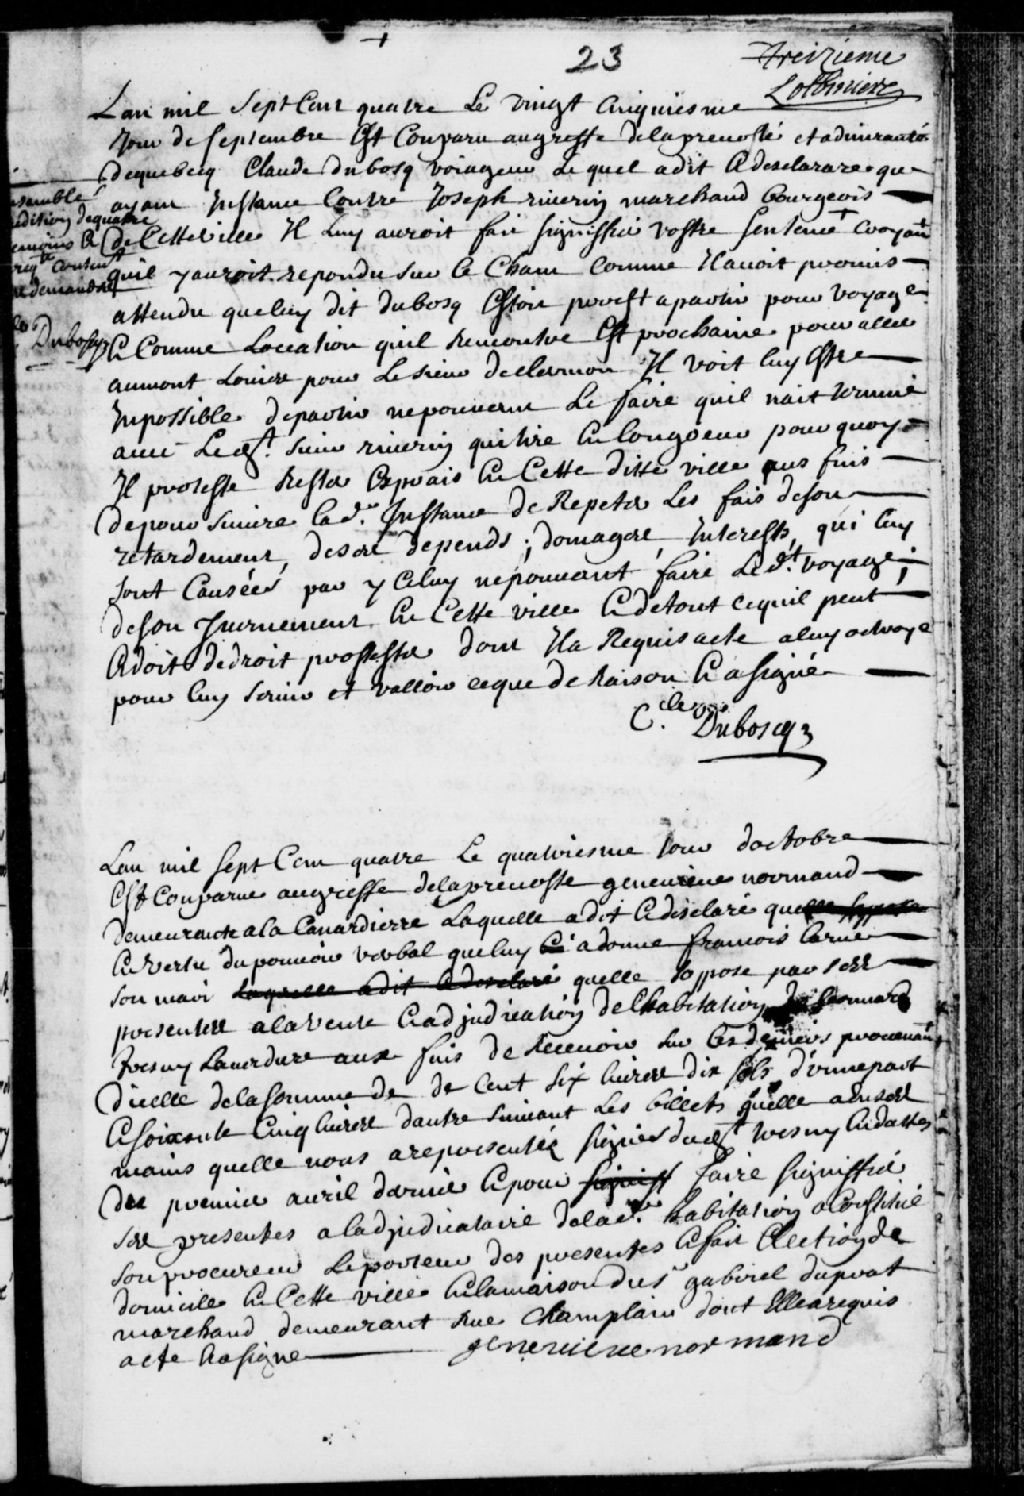 23
Treizieme
Lotbiniere
Lan mil Sept Cent quatre Le vingt Cinquiesme
Jour de Septembre Est Comparu augreffe delaprevosté et admirauté
dequebecq Claude dubosq voiageur Lequel adit Adesclarare que
ayant Instance Contre Joseph riverin marchand bourgeois
de Cetteville Il Luy auroit fait signiffier vostre Sentence + Croyant
quil y auroit repondu sur Le Cham comme Ilavoit promis
attendu queluy dit dubosq Estoit prest apartir pour voyage
Et Comme Loccation quil rencontre Est prochaine pour aller
aumont Louis pour Lesieur declermon Il voit luy Estre
Impossible departir nepouvent Le faire quil nait terminé
avec Led.t sieur riverin quitire En longueur pour quoy
Il proteste rester Expres En Cette ditte ville aux fins
depoursuivre lad. Instance de Repeter Les fais deson
retardement, deses depends, domages, Interests, qui luy
sont Causéés par yceluy nepouvant faire Led.t voyage;
deson yvernement En Cette ville Et detout cequil peut
Et doit dedroit protester dont Ila Requis acte aluy octroyé
pour luy servir et valloir ceque de Raison Et asigné
C. Duboscq
ensemble
audition dequatre
temoins
Dubosq
Lan mil sept Cent quatre Le quatriesme Jour doctobre
Est Comparue augreffe delaprevosté genevieve normand
demeurante ala Canardierre Laquelle adit Et desclaré quelle soppose
En vertu dupouvoir verbal queluy a donné francois larue
son mari Laquelle adit Et desclaré quelle soppose par ses
presentes alavente Et adjudication de lhabitation
Jresny Laverdure aux fins de Recevoir sur Les deniers provenant
dicelle delasomme de de Cent six livres dix sols d'unepart
Et soixante Cinq livres dautre suivant Les billets quelle a en ses
mains quelle nous arepresentéz signés dud.t Jresny En dattes
du premier auril dernier Et pour signiff faire signiffier
ses presentes aladjudicataire delad. habitation aConstitué
son procureur Leporteur des presentes Et fait Election de
domicile En Cette ville En lamaison du Sr gabriel duprat
marchand demeurant rue champlain dont Ellearequis
acte Et asigne
genevieve normand